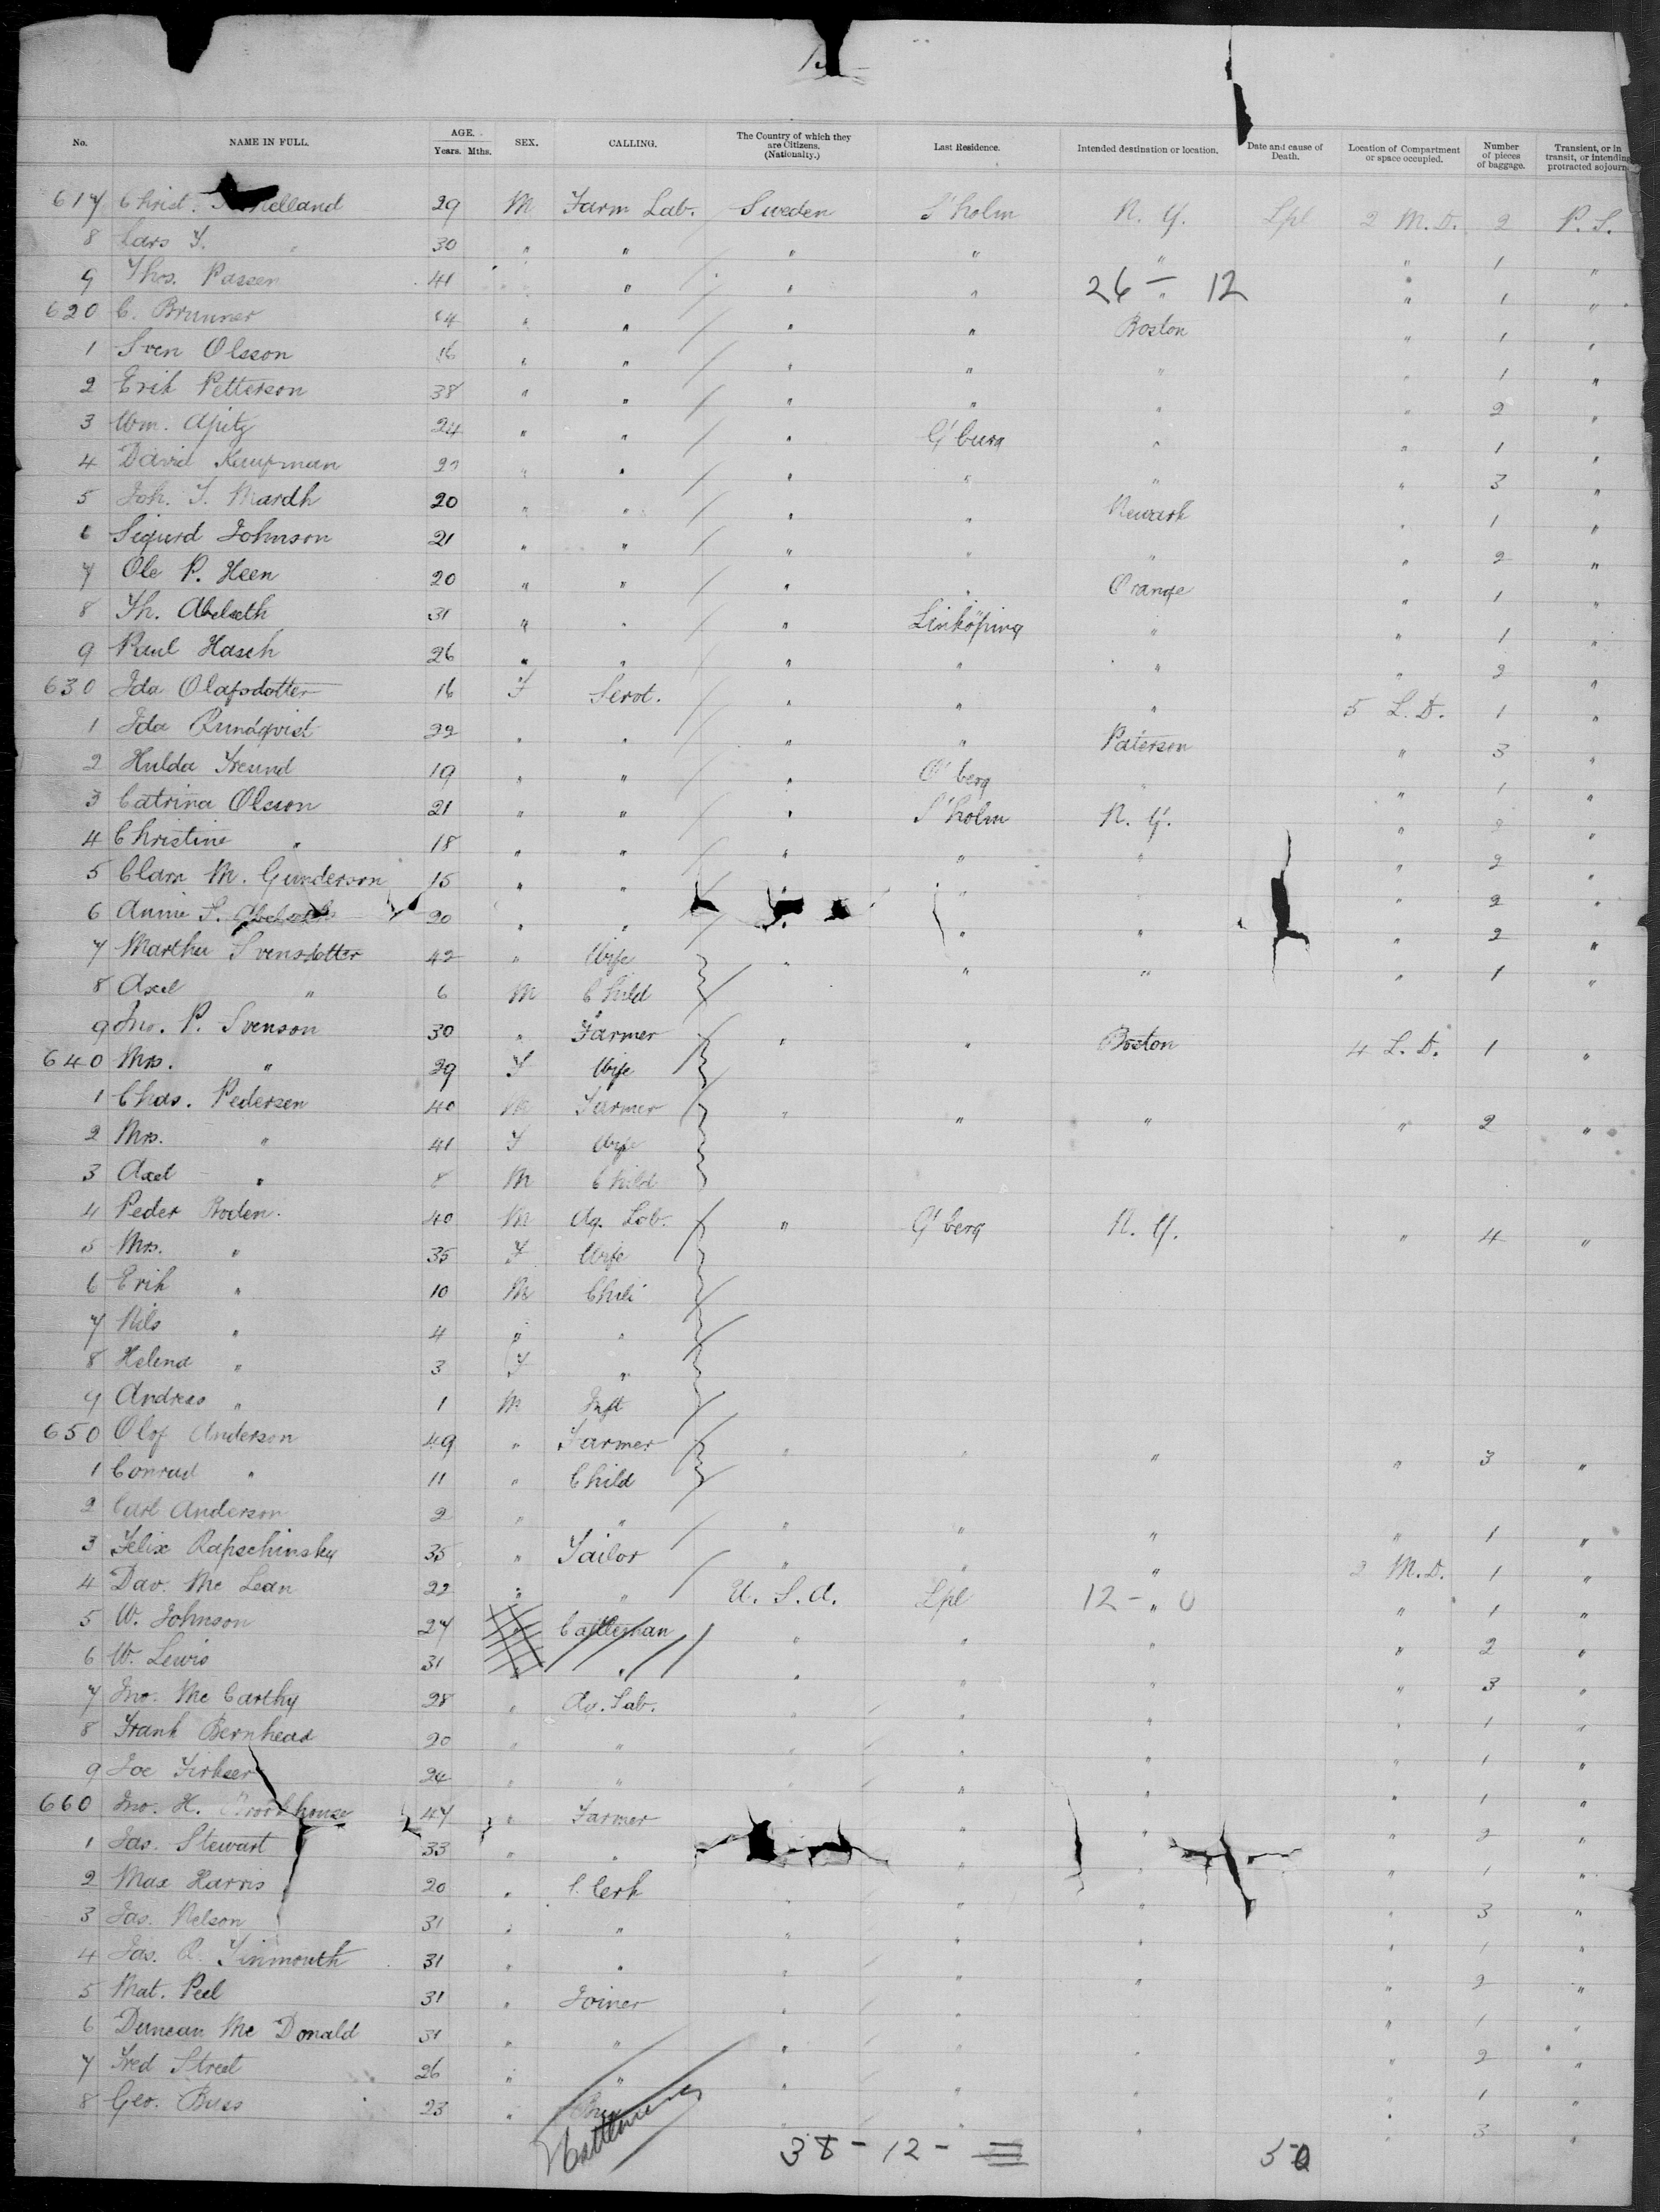 No. NAME IN FULL. AGE. Years. Mths. SEX. CALLING. The Country of which they are Citizens. (Nationalty.) Last Residence. Intended destination or location. Date and cause of Death. Location of Compartment or space occupied. Number of pieces of baggage. Transient, or in transit, or intending protracted sojourn
617 Christ. 29 M Farm Lab. Sweden S'holm N. Y. Lpl 2 M. D. 2 P. S.
8 Lars T. " 30 " " " " " " 1 "
9 Thos. Passen 41 " " " " 26 - " 12 " 1 "
620 C. Brunner " " " " Boston " 1 "
1 Sven Olsson 16 " " " " " " 1 "
2 Erik Petterson 38 " " " " " " 2 "
3 Wm. Apitz 24 " " " G'burg " " 1 "
4 David Kaufman " " " " " " 3 "
5 Joh. T. Mardh 20 " " " " Newark " 1 "
6 Sigurd Johnson 21 " " " " " " 2 "
7 Ole P. Heen 20 " " " " Orange " 1 "
8 Th. 31 " " " Linköping " " 1 "
9 Paul Hasch 26 " " " " " " 2 "
630 Ida Olafsdotter 16 F Servt. " " " 5 L. D. 1 "
1 Ida Rundqvist 22 " " " " Paterson " 3 "
2 Hulda Freund 19 " " " G'berg " " 1 "
3 Catrina Olsson 21 " " " S'holm N. Y. " 2 "
4 Christine " 18 " " " " " " 2 "
5 Clara M. Gunderson 15 " " " " " " 2 "
6 Annie S. 20 " " " " " " 2 "
7 Martha Svensdotter 42 " Wife " " " " 1 "
8 Axel " 6 M Child
9 Jno. P. Svenson 30 " Farmer " " Boston 4 L. D. 1 "
640 Mrs. " 29 F Wife
1 Chas. Pedersen 40 M Farmer " " " " 2 "
2 Mrs. " 41 F Wife
3 Axel " 8 M Child
4 Peder Boden. 40 M Ag. Lab. " G'berg N. Y. " 4 "
5 Mrs. " 35 F Wife
6 Erik " 10 M Child
7 Nils " 4 " "
8 Helena " 3 F "
9 Andreas " 1 M Inft
650 Olof Anderson 49 " Farmer " " " " 3 "
1 Conrad " 11 " Child
2 Carl Anderson 2 " " " " " " 1 "
3 Felix Rapschinsky 35 " Tailor " " " 2 M. D. 1 "
4 Dav. Mc Lean 22 " " U. S. A. Lpl 12 - " 0 " 1 "
5 W. Johnson 27 " Cattleman " " " " 2 "
6 W. Lewis 31 " " " " " " 3 "
7 Jno. Mc Carthy 28 " Ag. Lab. " " " " 1 "
8 Frank Bernhead 20 " " " " " " 1 "
9 Joe 24 " " " " " " 1 "
660 Jno. H. Brookhouse 47 " Farmer " " " 2 "
1 Jas. Stewart 33 " " " " " 1 "
2 Max Harris 20 " Clerk " " " 3 "
3 Jas. Nelson 31 " " " " " " 1 "
4 Jas. R. Tinmouth 31 " " " " " " 2 "
5 Mat. Peel 31 " Joiner " " " " 1 "
6 Duncan Mc Donald 31 " " " " " " 2 "
7 Fred Street 26 " " " " " " 1 "
8 Geo. Buss 23 " " " " " 3 "
Cattlemen 38 - 12 - 50